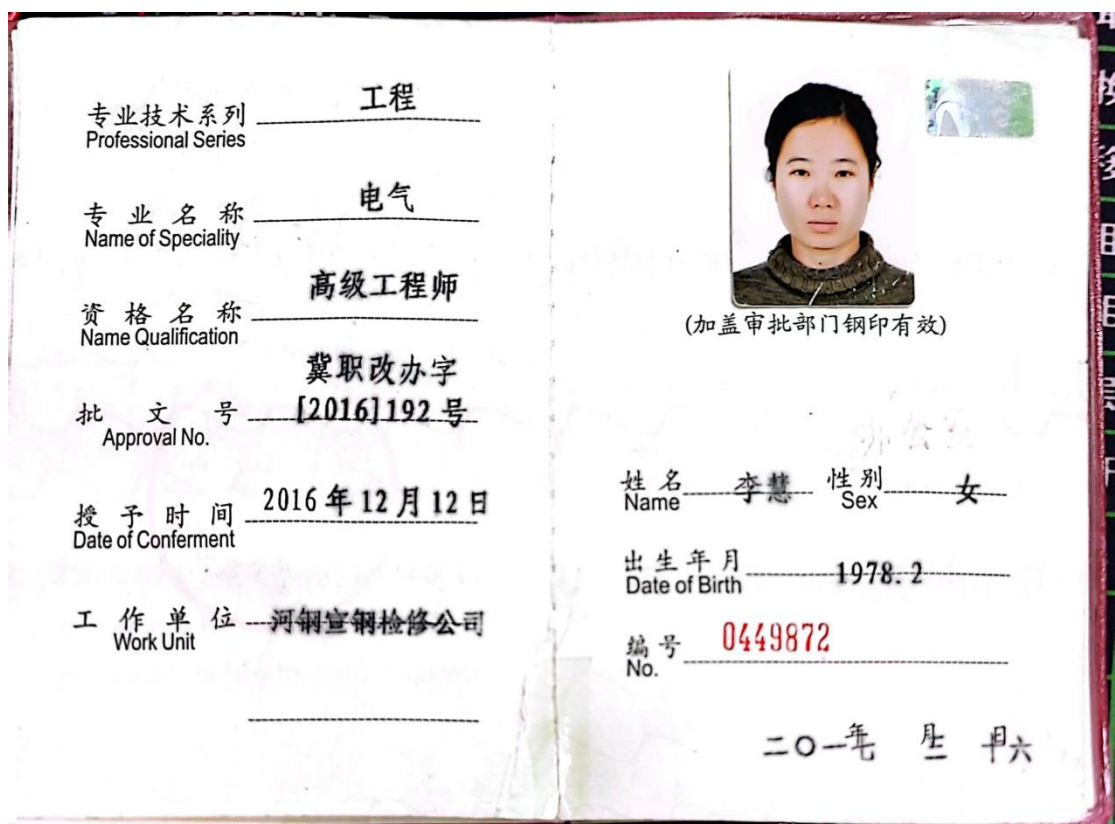 专业技术系列 工程
Professional Series
专业名称 电气
Name of Speciality
资格名称 高级工程师
Name Qualification
冀职改办字
批文号 [2016]192号
Approval No.
授予时间 2016年12月12日
Date of Conferment
工作单位 河钢宣钢检修公司
Work Unit
(加盖审批部门钢印有效)
姓名 李慧 性别 女
Name Sex
出生年月 1978.2
Date of Birth
编号 0449872
No.
二〇一七年 月 日十六